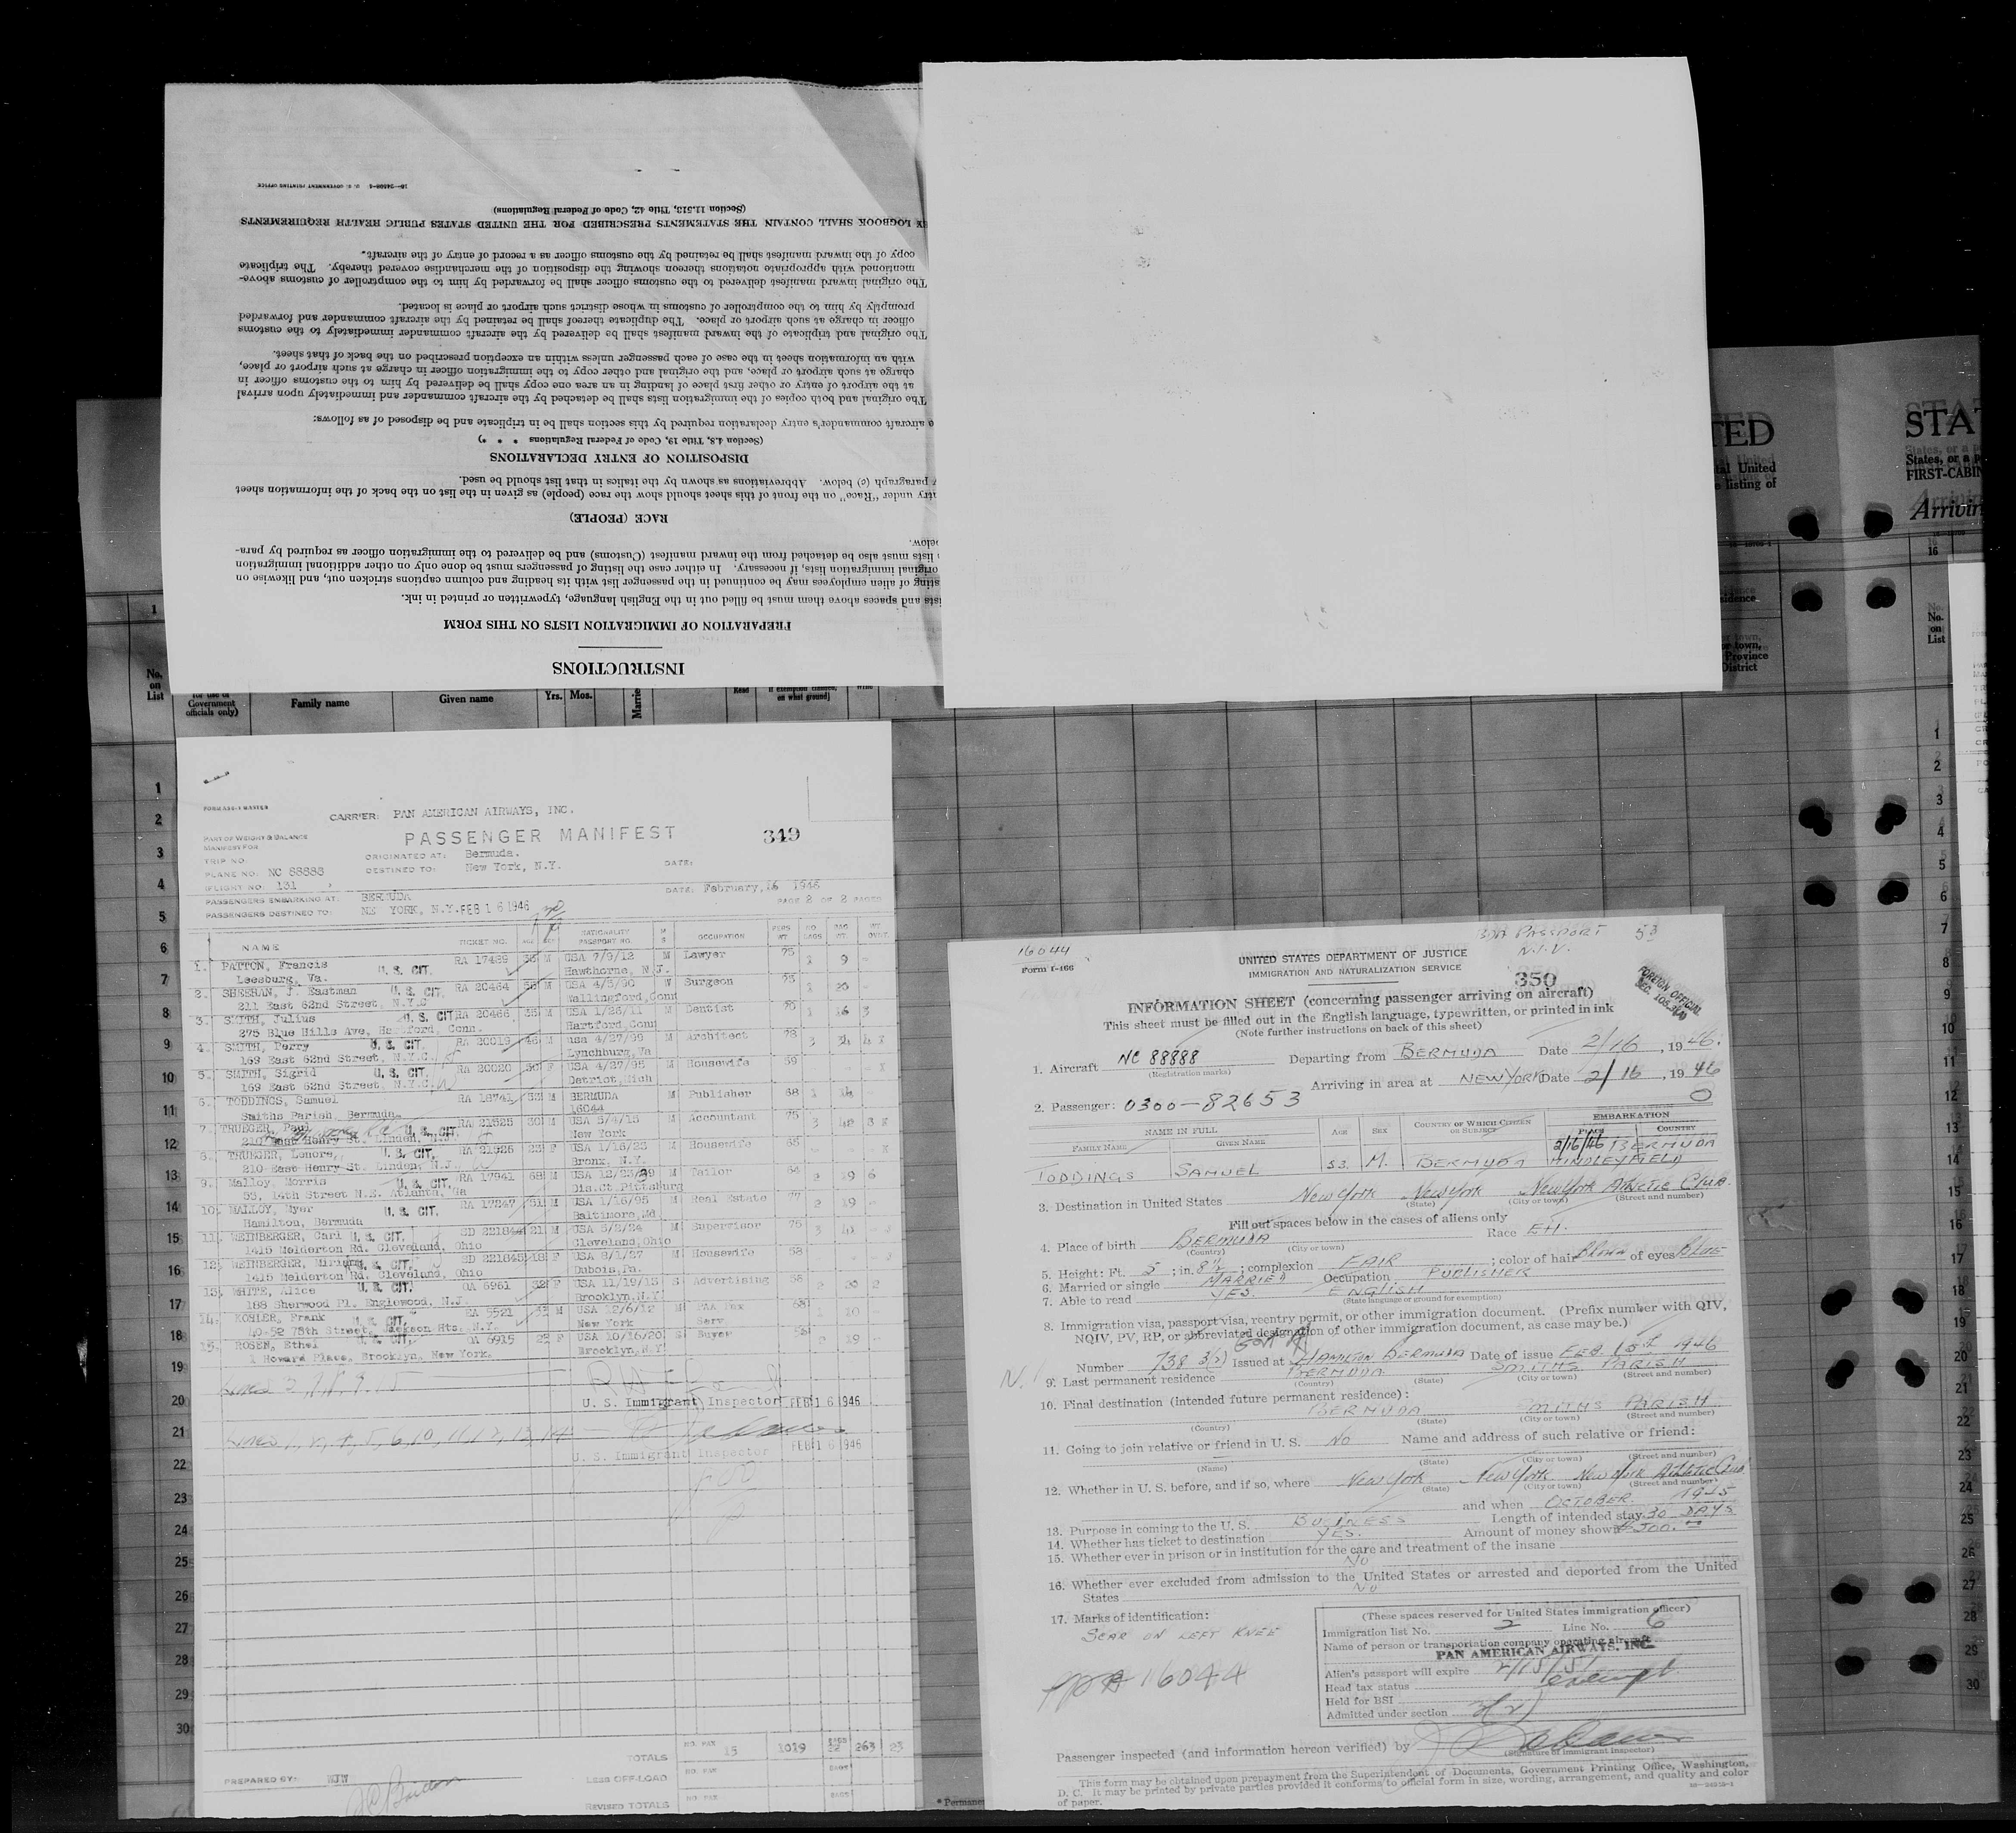 16—24308-1 U. S. GOVERNMENT PRINTING OFFICE
(Section 11.513, Title 42, Code of Federal Regulations)
LOGBOOK SHALL CONTAIN THE STATEMENTS PRESCRIBED FOR THE UNITED STATES PUBLIC HEALTH REQUIREMENTS
copy of the inward manifest shall be retained by the customs officer as a record of entry of the aircraft.
mentioned with appropriate notations thereon showing the disposition of the merchandise covered thereby. The triplicate
The original inward manifest delivered to the customs officer shall be forwarded by him to the comptroller of customs above-
promptly by him to the comptroller of customs in whose district such airport or place is located.
officer in charge at such airport or place. The duplicate thereof shall be retained by the aircraft commander and forwarded
The original and triplicate of the inward manifest shall be delivered by the aircraft commander immediately to the customs
with an information sheet in the case of each passenger unless within an exception prescribed on the back of that sheet.
charge at such airport or place, and the original and other copy to the immigration officer in charge at such airport or place,
at the airport of entry or other first place of landing in an area one copy shall be delivered by him to the customs officer in
The original and both copies of the immigration lists shall be detached by the aircraft commander and immediately upon arrival
aircraft commander's entry declaration required by this section shall be in triplicate and be disposed of as follows:
(Section 4.8, Title 19, Code of Federal Regulations * * *)
DISPOSITION OF ENTRY DECLARATIONS
paragraph (c) below. Abbreviations as shown by the italics in that list should be used.
under "Race" on the front of this sheet should show the race (people) as given in the list on the back of the information sheet
RACE (PEOPLE)
below.
lists must also be detached from the inward manifest (Customs) and be delivered to the immigration officer as required by para-
original immigration lists, if necessary. In either case the listing of passengers must be done only on other additional immigration
of alien employees may be continued in the passenger list with its heading and column captions stricken out, and likewise on
and spaces above them must be filled out in the English language, typewritten or printed in ink.
PREPARATION OF IMMIGRATION LISTS ON THIS FORM
INSTRUCTIONS
No. on List
Government officials only)
Family name
Given name
Yrs. Mos.
Read
on what ground]
FORM ASC-1 MASTER
CARRIER: PAN AMERICAN AIRWAYS, INC.
PART OF WEIGHT & BALANCE
MANIFEST FOR
PASSENGER MANIFEST 349
TRIP NO. ORIGINATED AT: Bermuda.
PLANE NO: NC 88888 DESTINED TO: New York, N.Y. DATE:
FLIGHT NO. 131
PASSENGERS EMBARKING AT: BERMUDA DATE: February, 16 1946
PASSENGERS DESTINED TO: NE YORK, N.Y. FEB 16 1946 PAGE 2 OF 2 PAGES
NAME TICKET NO. AGE SEX NATIONALITY PASSPORT NO. M S OCCUPATION PERS WT NO. BAGS BAG WT WT OVWT.
1. PATTON, Francis U. S. CIT. RA 17489 M USA 7/9/12 M Lawyer 75 1 9
Leesburg, Va. Hawthorne, N.J.
2. SHEEHAN, J. Eastman U. S. CIT. RA 20464 M USA 4/5/90 W Surgeon 20
211 East 62nd Street, N.Y.C Wallingford, Conn
3. SMITH, Julius U. S. CIT. RA 20466 M USA 1/26/11 M Dentist 1 16 3
275 Blue Hills Ave, Hartford, Conn. Hartford, Conn
4. SMITH, Perry U. S. CIT. RA 20019 46 M usa 4/27/99 M Architect 78
169 East 62nd Street, N.Y.C. Lynchburg, Va
5. SMITH, Sigrid U. S. CIT. RA 20020 50 F USA 4/27/95 M Housewife 59
169 East 62nd Street, N.Y.C. Detriot, Mich
6. TODDINGS, Samuel RA 18741 M BERMUDA M Publisher 68 1 14
Smiths Parish, Bermuda 16044
7. TRUEGER, Paul U. S. CIT. RA 21525 30 M M Accountant 75
210 East Henry St. Linden, N.J. New York
8. TRUEGER, Lenore, U. S. CIT. RA 21526 F USA 1/16/23 M Housewife
210 East Henry St. Linden, N.J. Bronx, N.Y.
9. Malloy, Morris U. S. CIT. RA 17941 68 M M Tailor 2 19 6
53, 14th Street N.E. Atlanta, Ga Pittsburg
10. MALLOY, Myer U. S. CIT. RA 17247 51 M USA 1/16/95 M Real Estate 2 19
Hamilton, Bermuda Baltimore, Md
11. WEINBERGER, Carl U. S. CIT. SD 221844 21 M M Supervisor
1415 Melderton Rd. Cleveland, Ohio Cleveland, Ohio
12. WEINBERGER, Miriam U. S. CIT. SD 221845 18 F USA 9/1/27 M Housewife 58
1415 Melderton Rd. Cleveland, Ohio Dubois, Pa.
13. WHITE, Alice U. S. CIT. OA 6961 F USA 11/19/13 S Advertising 2
188 Sherwood Pl. Englewood, N.J. Brooklyn, N.Y.
14. KOHLER, Frank U. S. CIT. RA 5521 33 M USA 12/6/12 M 10
40-52 78th Street, Jackson Hts, N.Y. New York Serv
15. ROSEN, Ethel U. S. CIT. OA 6915 F USA 10/16/20 S Buyer 2 19
1 Howard Place, Brooklyn, New York. Brooklyn, N.Y.
U. S. Immigrant Inspector FEB 16 1946
U. S. Immigrant Inspector FEB 16 1946
TOTALS NO. PAX 15 1019 263 23
LESS OFF-LOAD NO. PAX
REVISED TOTALS NO. PAX
PREPARED BY: WJW
* Permanent
16044
BDA PASSPORT 53
N.I.V.
Form I-466
UNITED STATES DEPARTMENT OF JUSTICE
IMMIGRATION AND NATURALIZATION SERVICE
350
FOREIGN OFFICIAL
INFORMATION SHEET (concerning passenger arriving on aircraft)
This sheet must be filled out in the English language, typewritten, or printed in ink
(Note further instructions on back of this sheet)
1. Aircraft NC 88888 Departing from BERMUDA Date 2/16, 1946.
(Registration marks)
Arriving in area at NEW YORK Date 2/16, 1946
2. Passenger: 0300-82653
NAME IN FULL AGE SEX COUNTRY OF WHICH CITIZEN OR SUBJECT EMBARKATION
FAMILY NAME GIVEN NAME PLACE COUNTRY
TODDINGS SAMUEL 53. M. BERMUDA 2/16/46 BERMUDA
KINDLEY FIELD
3. Destination in United States New York New York New York Athletic Club.
(State) (City or town) (Street and number)
Fill out spaces below in the cases of aliens only
4. Place of birth BERMUDA Race EH.
(Country) (City or town)
5. Height: Ft. 5; in. 8½; complexion FAIR; color of hair Blond of eyes BLUE
6. Married or single MARRIED Occupation PUBLISHER
7. Able to read YES. ENGLISH
(State language or ground for exemption)
8. Immigration visa, passport visa, reentry permit, or other immigration document. (Prefix number with QIV,
NQIV, PV, RP, or abbreviated designation of other immigration document, as case may be.)
Number 738 3(2) Issued at HAMILTON BERMUDA Date of issue FEB. 15th 1946
9. Last permanent residence BERMUDA SMITHS PARISH
(Country) (State) (City or town) (Street and number)
10. Final destination (Intended future permanent residence):
BERMUDA SMITHS PARISH
(Country) (State) (City or town) (Street and number)
11. Going to join relative or friend in U. S. No Name and address of such relative or friend:
(Name) (State) (City or town) (Street and number)
12. Whether in U. S. before, and if so, where New York New York New York Athletic Club
(State) (City or town) (Street and number)
and when OCTOBER 1945
13. Purpose in coming to the U. S. BUSINESS Length of intended stay 30 DAYS
14. Whether has ticket to destination YES. Amount of money shown
15. Whether ever in prison or in institution for the care and treatment of the insane
No
16. Whether ever excluded from admission to the United States or arrested and deported from the United
States No
17. Marks of identification:
SCAR ON LEFT KNEE
16044
(These spaces reserved for United States immigration officer)
Immigration list No. 2 Line No. 6
Name of person or transportation company operating aircraft
PAN AMERICAN AIRWAYS, INC.
Alien's passport will expire 2/15/51
Head tax status exempt
Held for BSI
Admitted under section 3(2)
Passenger inspected (and information hereon verified) by
(Signature of immigrant inspector)
This form may be obtained upon prepayment from the Superintendent of Documents, Government Printing Office, Washington,
D. C. It may be printed by private parties provided it conforms to official form in size, wording, arrangement, and quality and color
of paper.